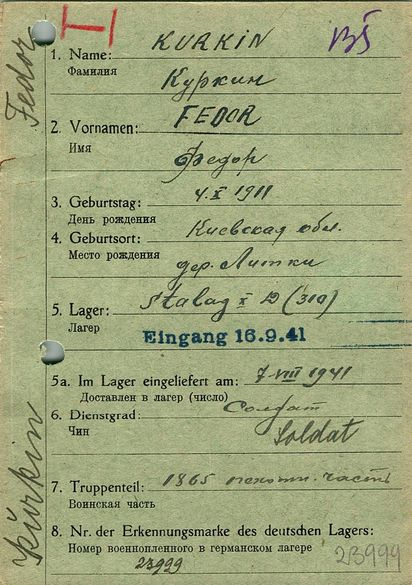 Fedor
Kurkin
1. Name: KURKIN
Фамилия Куркин
2. Vornamen: FEDOR
Имя Федор
3. Geburtstag: 4. X 1911
День рождения
4. Geburtsort: Киевская обл.
Место рождения дер. Литки
5. Lager: Stalag X D (310)
Лагер
Eingang 16.9.41
5a. Im Lager eingeliefert am: 7-VIII 1941
Доставлен в лагер (число)
6. Dienstgrad: Солдат
Чин Soldat
7. Truppenteil: 1865 пехотн. часть
Воинская часть
8. Nr. der Erkennungsmarke des deutschen Lagers:
Номер военнопленного в германском лагере
23999 23999